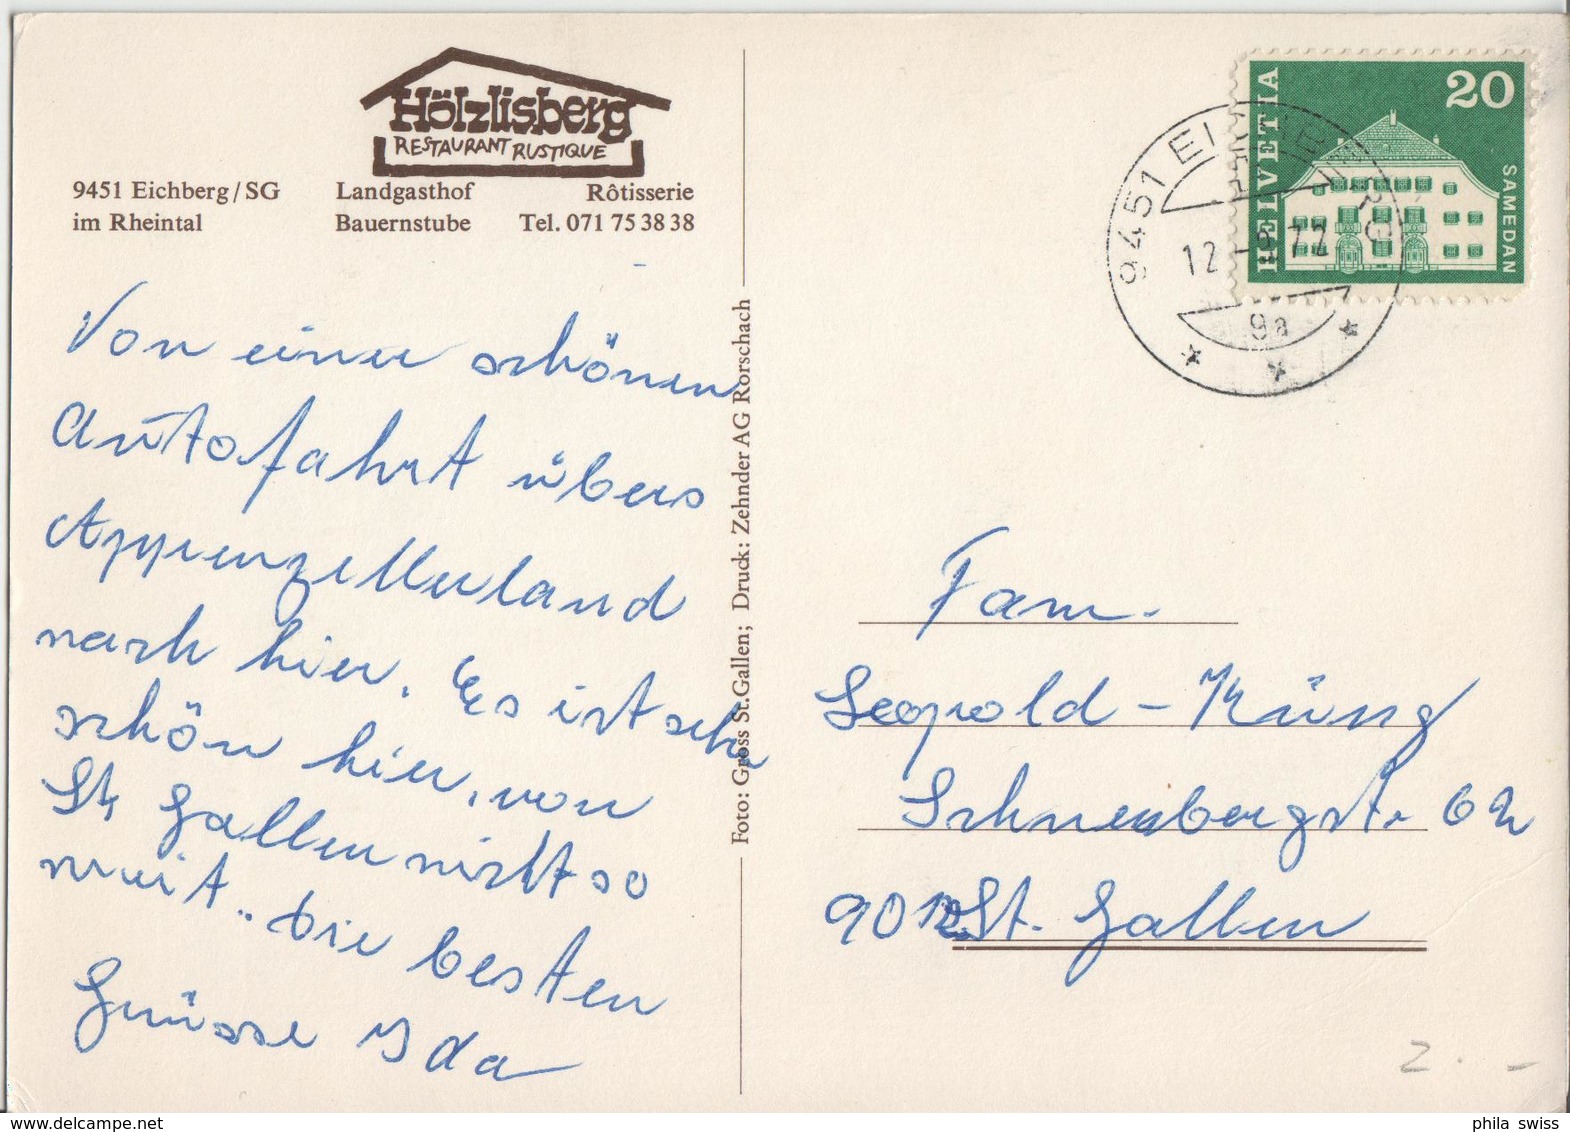 Hölzlisberg
RESTAURANT RUSTIQUE
9451 Eichberg/SG
im Rheintal
Landgasthof
Bauernstube
Rôtisserie
Tel. 071 75 38 38
Von einer schönen
Autofahrt übers
Appenzellerland
nach hier. Es ist sehr
schön hier, von
St. Gallen nicht so
weit. Die besten
Grüsse Ida
Foto: Gross St. Gallen; Druck: Zehnder AG Rorschach
HELVETIA
20
SAMEDAN
9451 EICHBERG
12
72
9a
Fam.
Leopold - Küng
Schneebergstr. 62
9012 St. Gallen
2. -
phila swiss